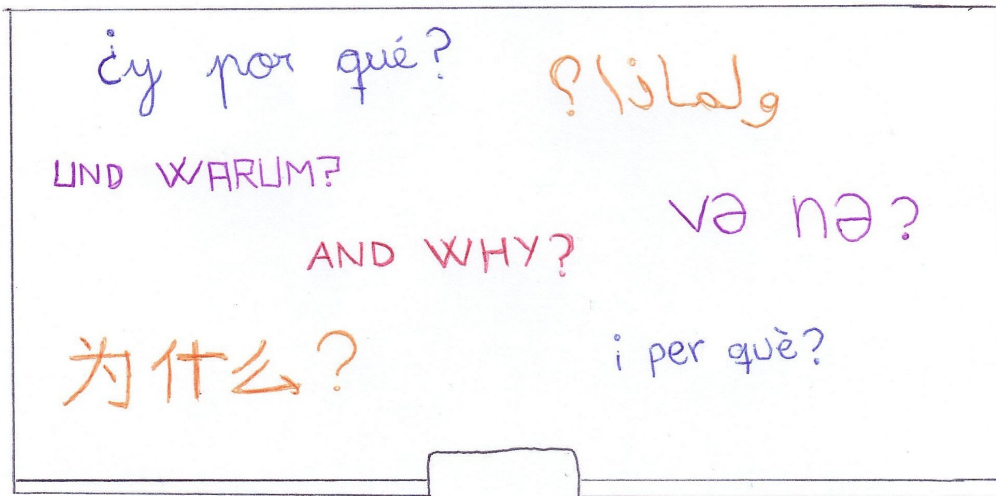 ¿y por qué?
ولماذا؟
UND WARUM?
və nə?
AND WHY?
为什么?
i per què?